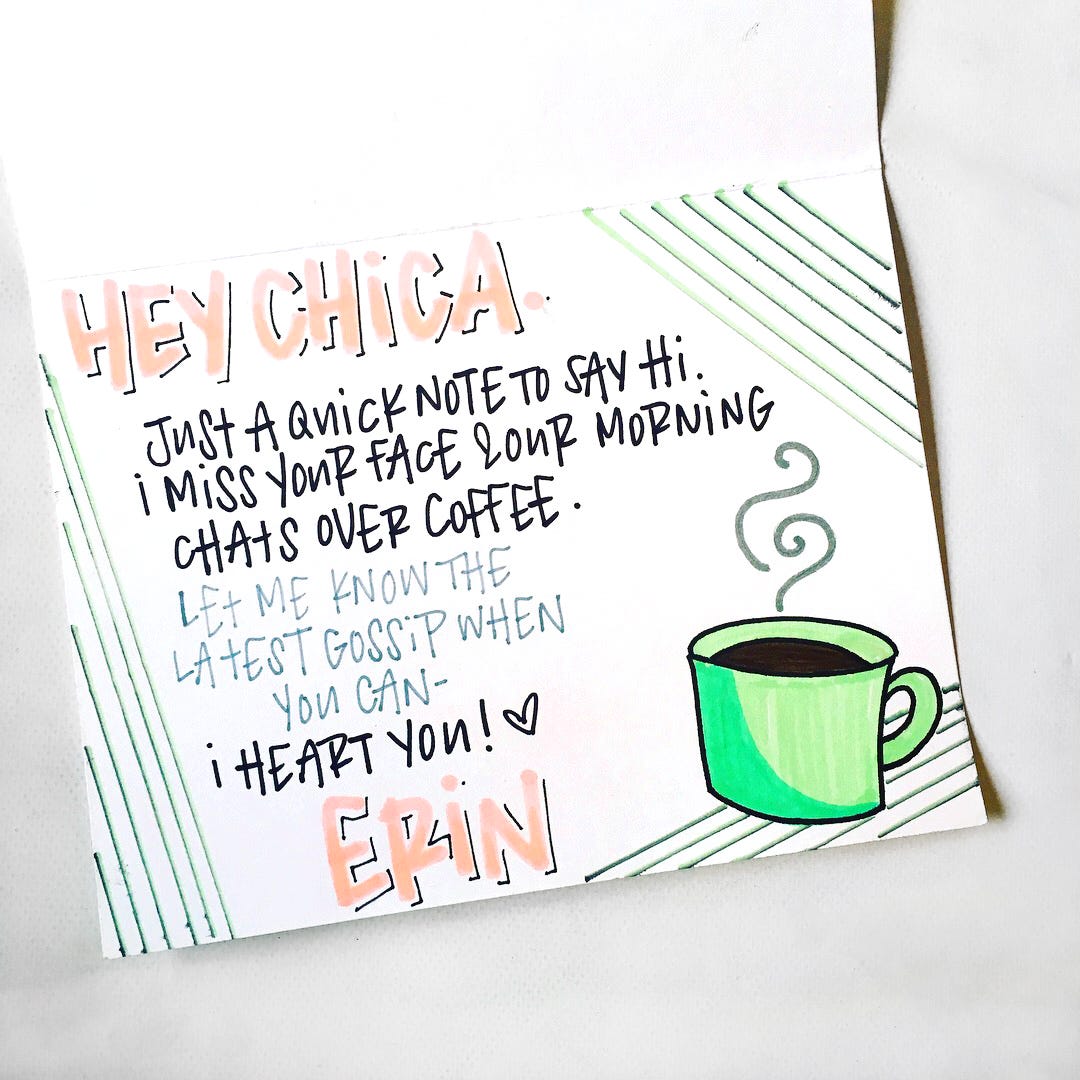 HEY CHiCA.
JuSt A QuiCK NOTE TO SAY Hi.
i MiSS YouR FACE & ouR MORNiNG
CHAtS OVER COFFEE.
LEt ME KNOW THE
LAtEST GOSSiP WHEN
You CAN-
i HEART You! ♡
ERiN